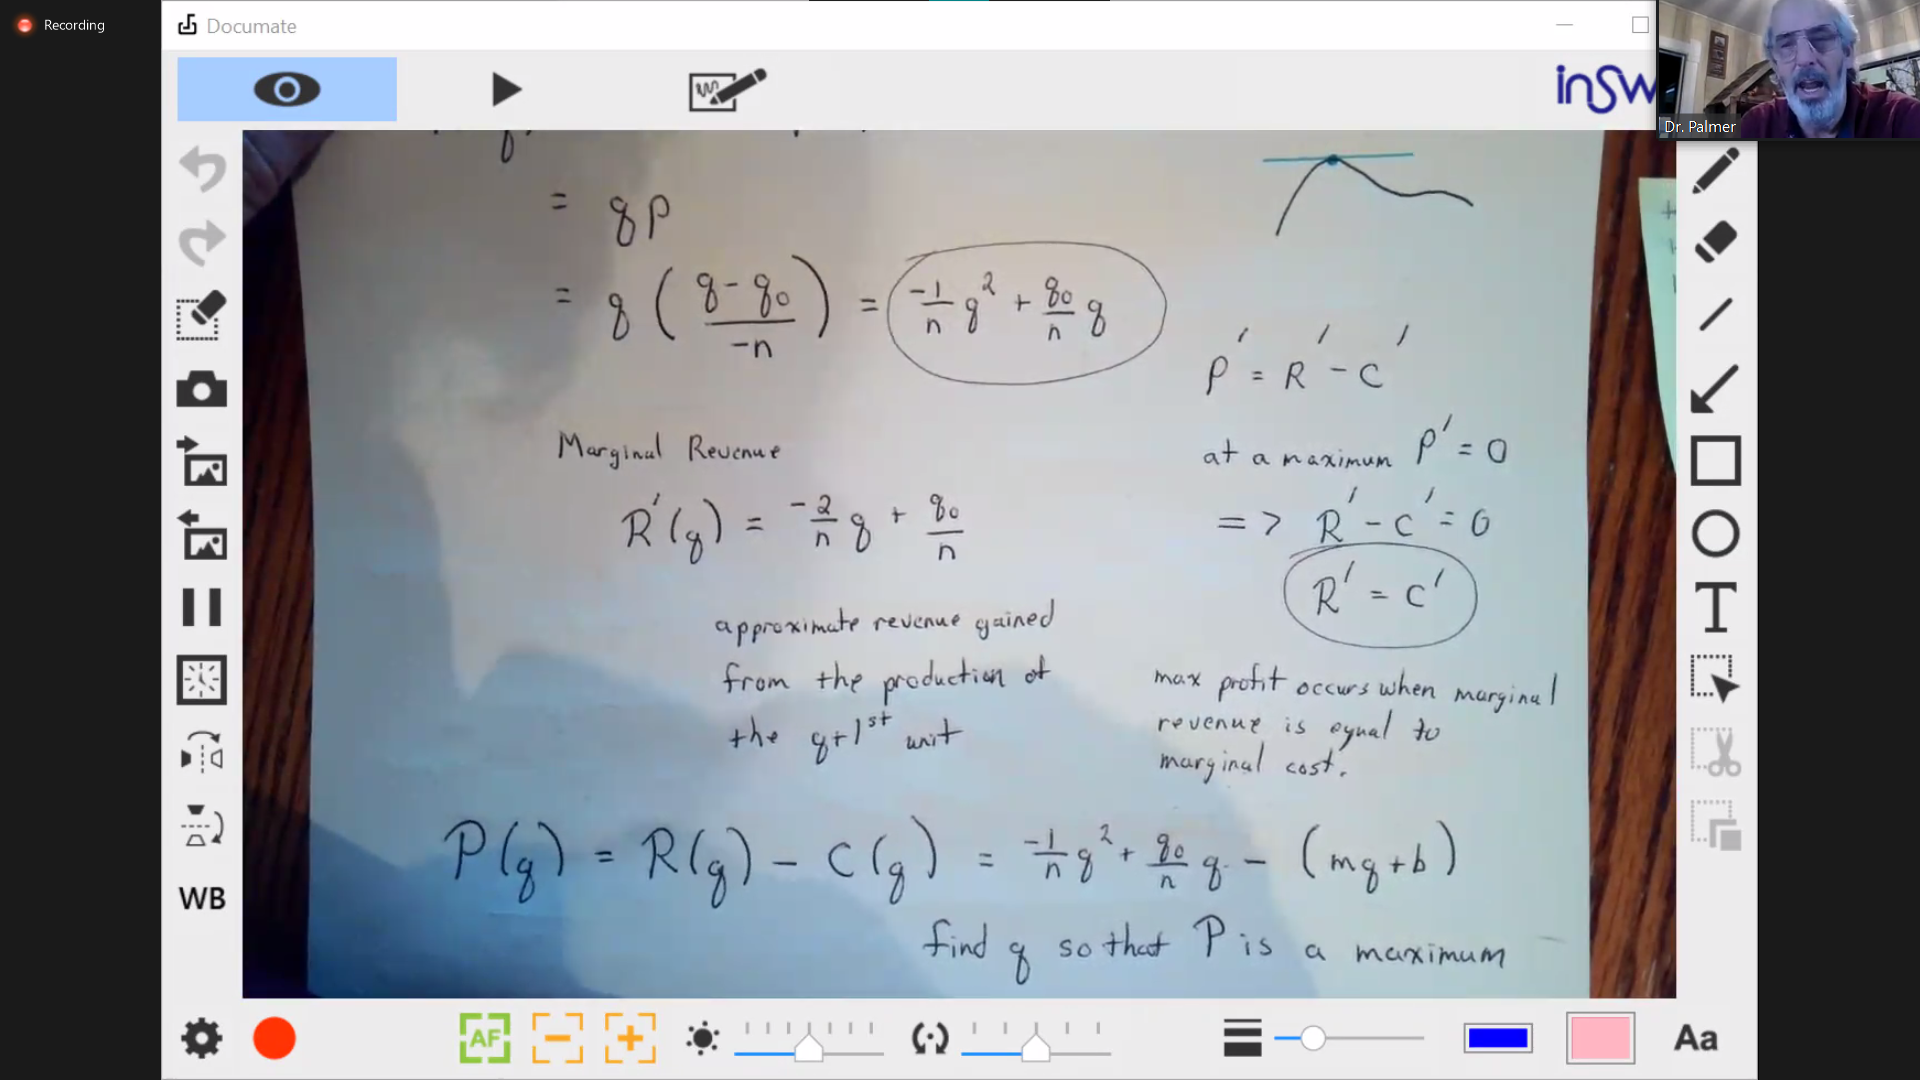 Recording
Documate
inSw
Dr. Palmer
= qp
= q ( (q - q₀) / -n ) = -1/n q² + q₀/n q
P' = R' - C'
Marginal Revenue
at a maximum P' = 0
R'(q) = -2/n q + q₀/n
=> R' - C' = 0
R' = C'
approximate revenue gained
from the production of
the q+1ˢᵗ unit
max profit occurs when marginal
revenue is equal to
marginal cost.
P(q) = R(q) - C(q) = -1/n q² + q₀/n q - (mq + b)
find q so that P is a maximum
WB
T
AF
Aa